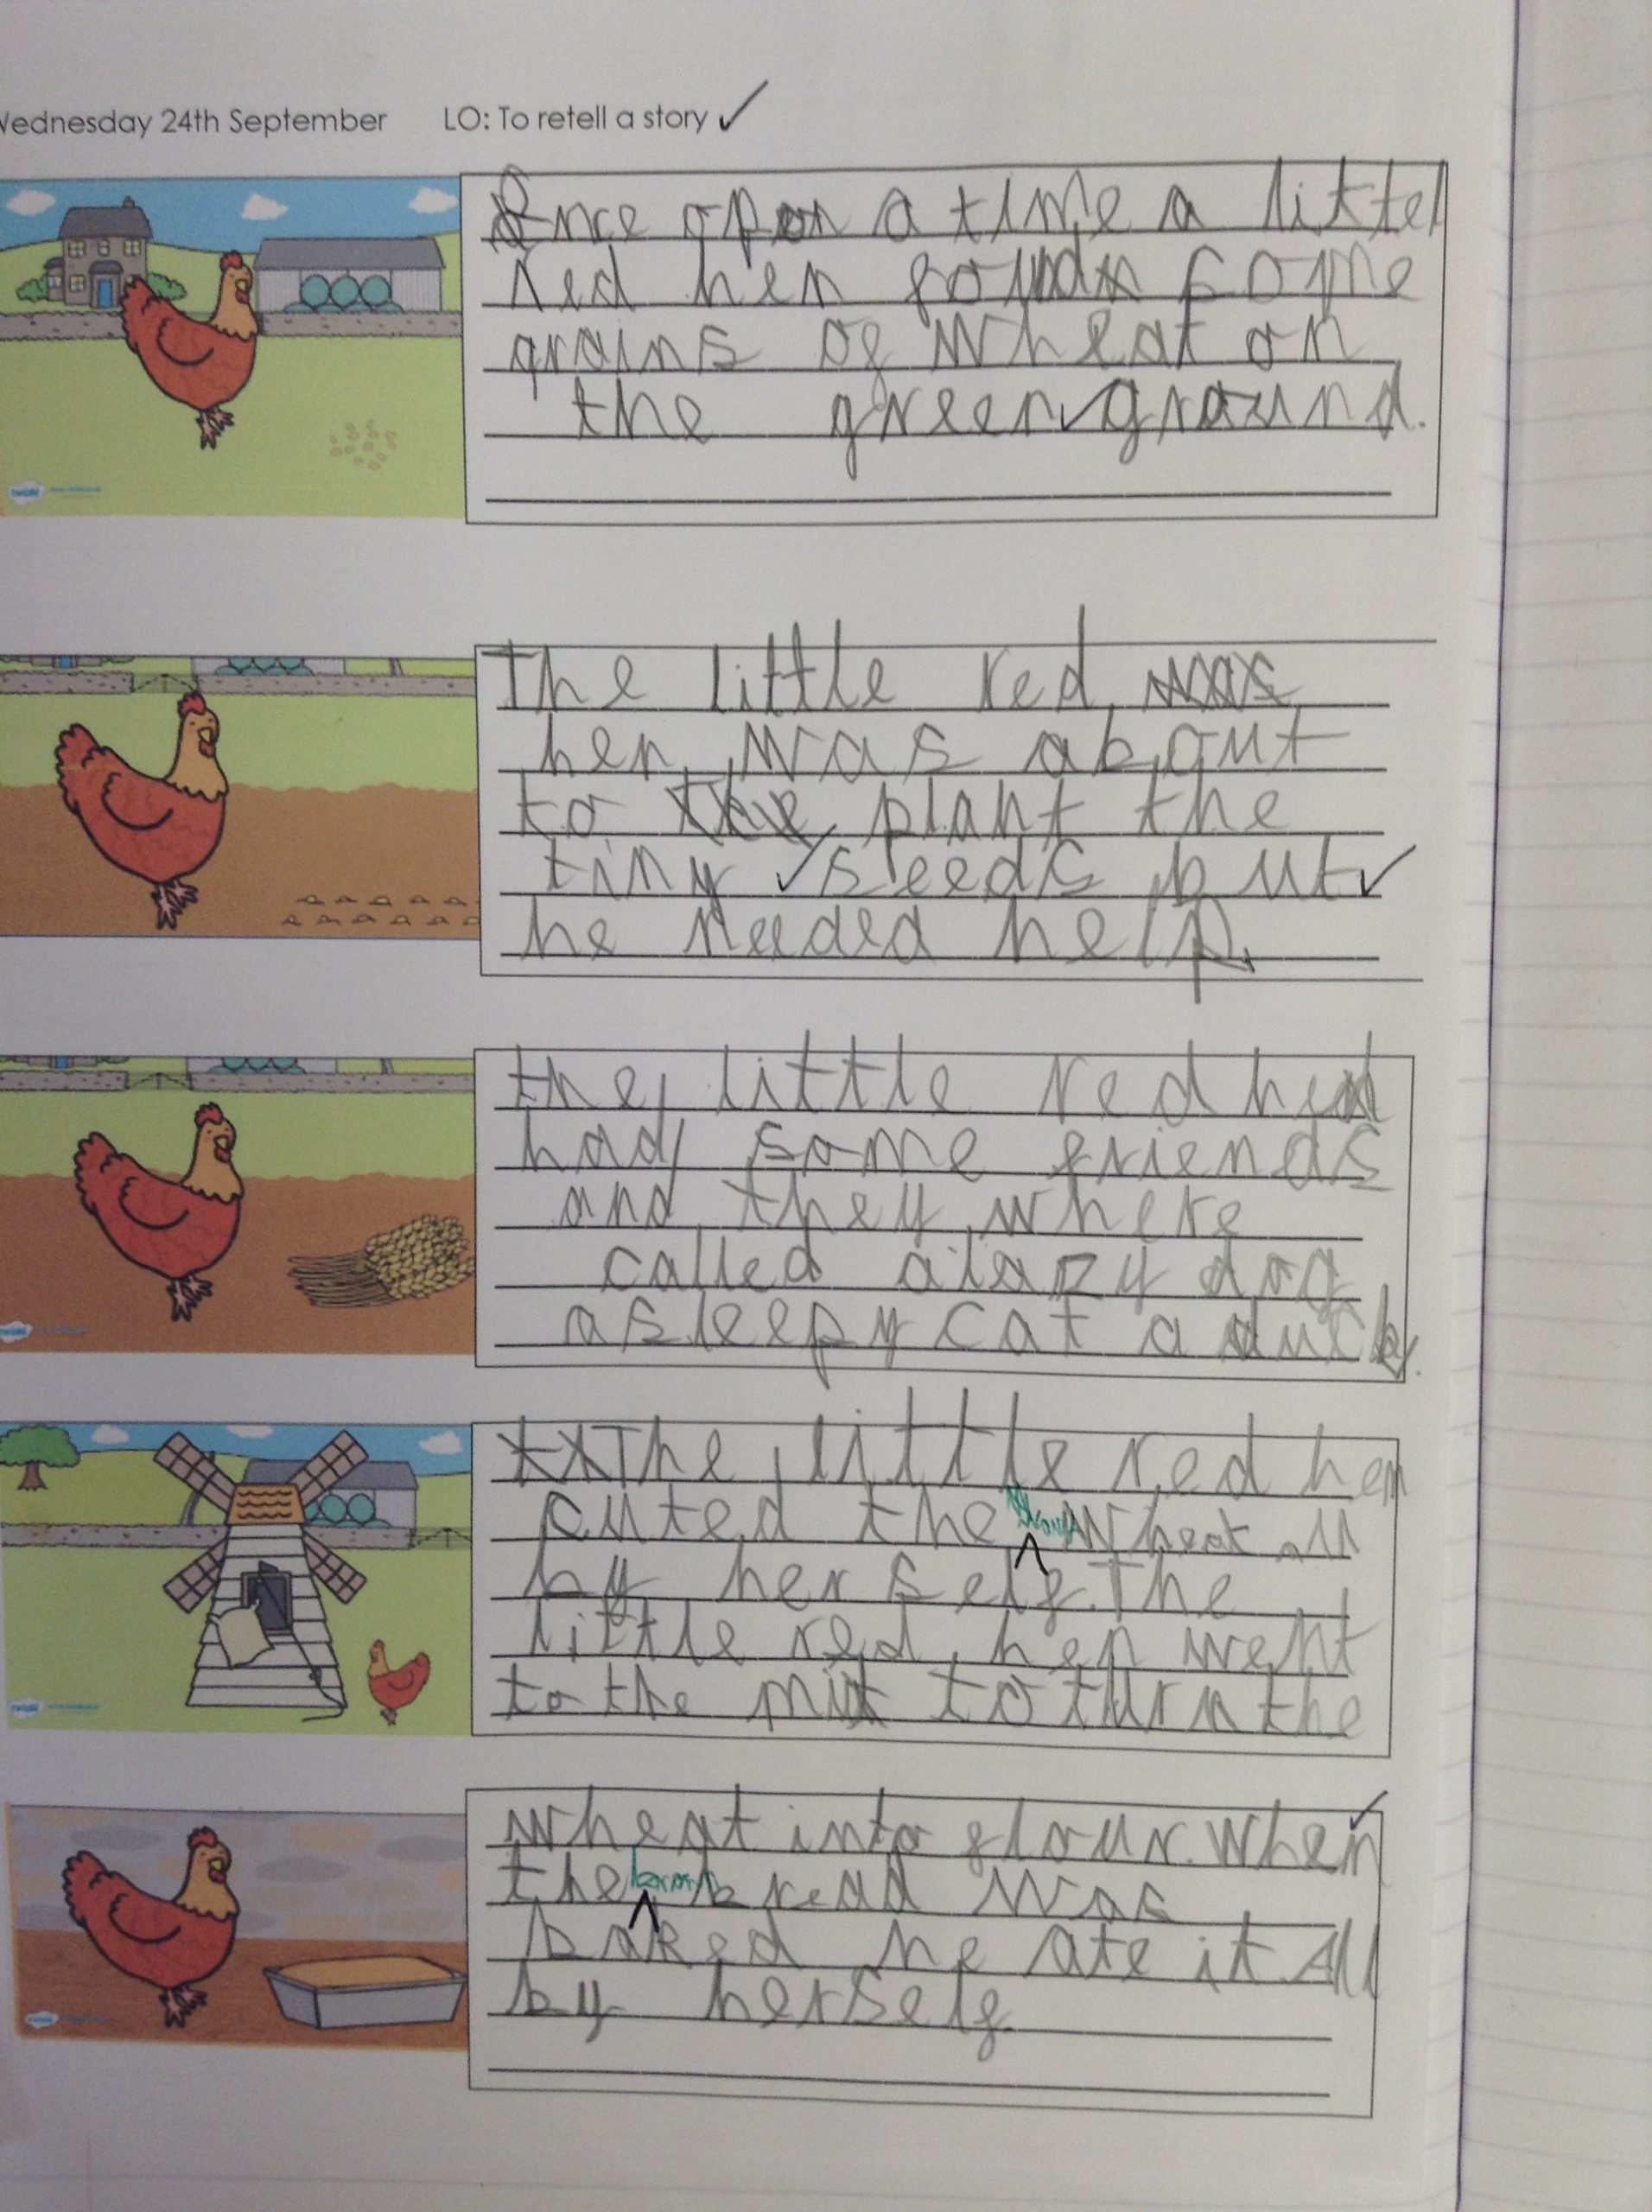 Wednesday 24th September LO: To retell a story
Once opon a time a littel
red hen found some
grains of wheat on
the green ground.
The little red was
hen was about
to the plant the
tiny seeds but
he needed help.
the little red hen
had some friends
and they where
called a lazy dog
a sleepy cat a duck.
The little red hen
cuted the wheat all
by her self. The
little red hen went
to the mill to turn the
wheat into flour. When
the brown bread was
baked he ate it All
by herself.